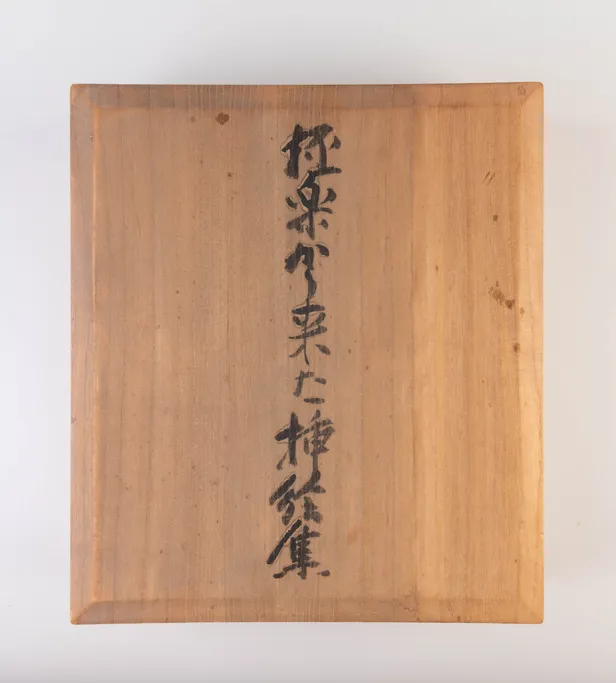 極楽から来た挿絵集